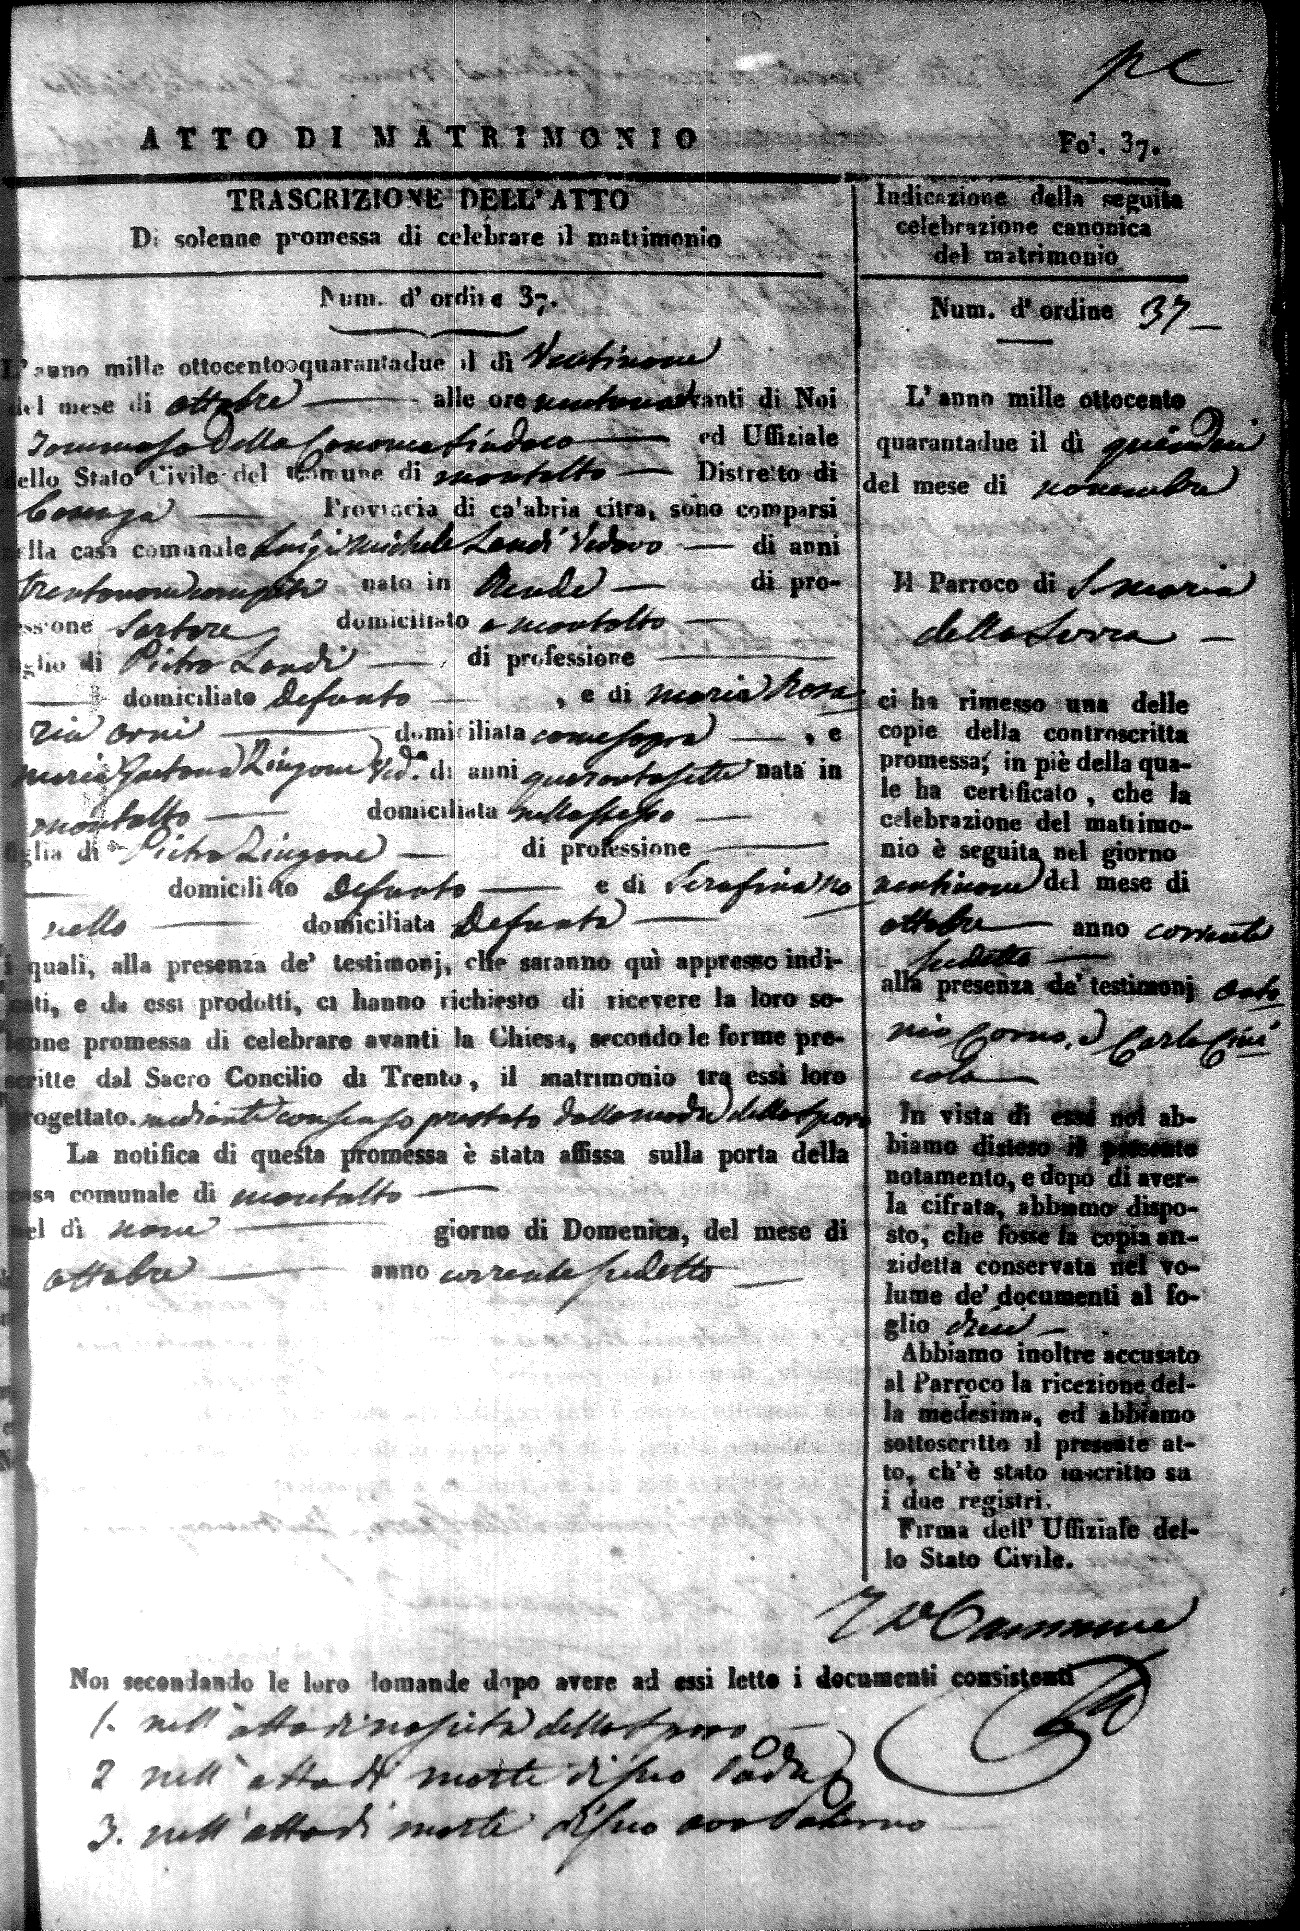 pc
ATTO DI MATRIMONIO
Fo'. 37.
TRASCRIZIONE DELL' ATTO
Di solenne promessa di celebrare il matrimonio
Num. d' ordine 37.
L' anno mille ottocento quarantadue il dì Ventinove
del mese di ottobre alle ore avanti di Noi
Tommaso Della Sindaco ed Uffiziale
dello Stato Civile del Comune di Montalto Distretto di
Cosenza Provincia di ca'abria citra, sono comparsi
nella casa comunale Luigi Michele Landi Vedovo di anni
trentanove compiti nato in Rende di pro-
fessione Sartore domiciliato a Montalto
figlio di Pietro Landi di professione
domiciliato Defunto , e di Maria Rosa
ria domiciliata come sopra , e
Maria Gaetana Zingone Ved.a di anni quarantasette nata in
Montalto domiciliata nello stesso
figlia di Pietro Zingone di professione
domiciliato Defunto e di Serafina No
nello domiciliata Defunta
i quali, alla presenza de' testimonj, che saranno quì appresso indi-
cati, e da essi prodotti, ci hanno richiesto di ricevere la loro so-
lenne promessa di celebrare avanti la Chiesa, secondo le forme pre-
scritte dal Sacro Concilio di Trento, il matrimonio tra essi loro
progettato. mediante consenso prestato dalla madre dello sposo
La notifica di questa promessa è stata affissa sulla porta della
casa comunale di Montalto
nel dì nove giorno di Domenica, del mese di
ottobre anno corrente sudetto
Noi secondando le loro domande dopo avere ad essi letto i documenti consistenti
1. nell' atto di nascita dello sposo
2 nell' atto di morte di suo Padre
3. nell' atto di morte di suo avo Paterno
Indicazione della seguita
celebrazione canonica
del matrimonio
Num. d' ordine 37
L' anno mille ottocento
quarantadue il dì quindici
del mese di novembre
Il Parroco di S. Maria
della Serra
ci ha rimesso una delle
copie della controscritta
promessa; in piè della qua-
le ha certificato, che la
celebrazione del matrimo-
nio è seguita nel giorno
ventinove del mese di
ottobre anno corrente
sudetto
alla presenza de' testimonj Anto
nio e Carlo Cini
cola
In vista di essi noi ab-
biamo disteso il presente
notamento, e dopo di aver-
la cifrata, abbiamo dispo-
sto, che fosse la copia an-
zidetta conservata nel vo-
lume de' documenti al fo-
glio
Abbiamo inoltre accusato
al Parroco la ricezione del-
la medesima, ed abbiamo
sottoscritto il presente at-
to, ch' è stato inscritto su
i due registri.
Firma dell' Uffiziale del-
lo Stato Civile.